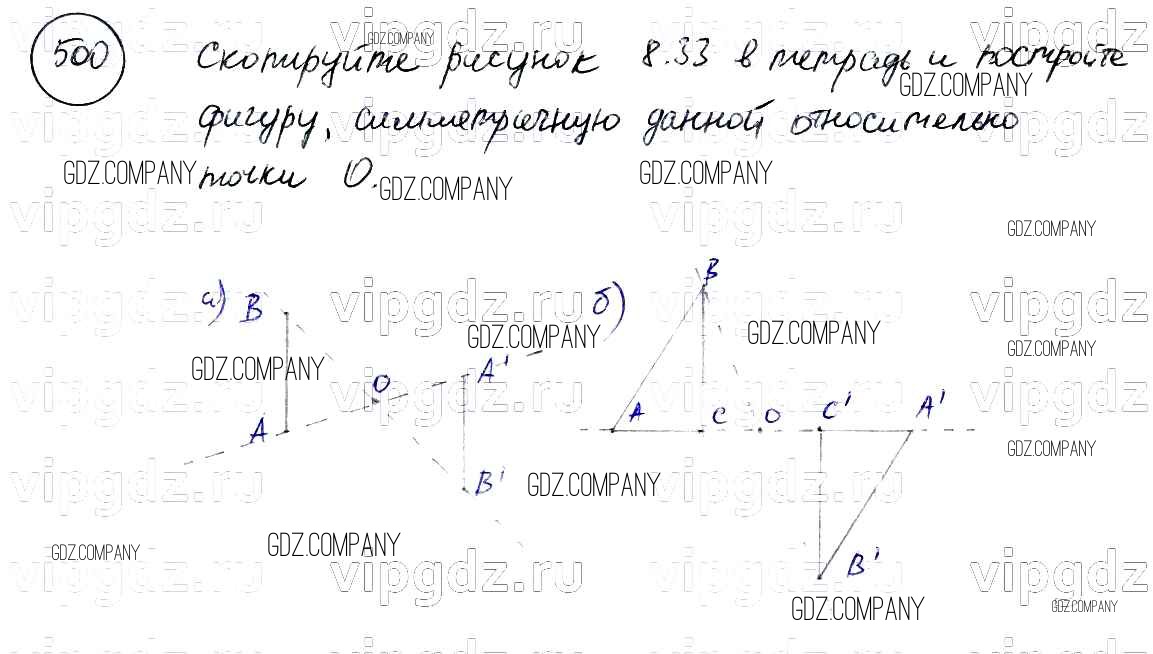 500
Скопируйте рисунок 8.33 в тетрадь и постройте
фигуру, симметричную данной относительно
точки О.
а) B A O A' B'
б) B A C O C' A' B'
GDZ.COMPANY
vipgdz.ru